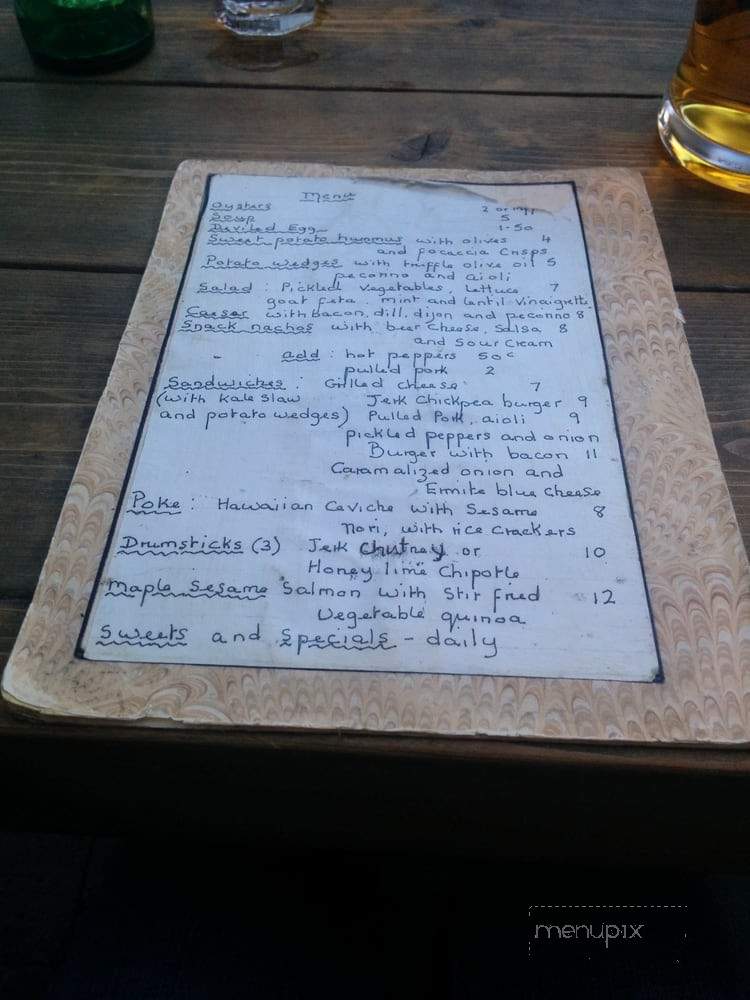 Menu
Oysters 2
Soup 5
Deviled Egg 1.50
Sweet potato hummus with olives 4
and focaccia Crisps
Potato wedges with truffle olive oil 5
pecorino and aioli
Salad : Pickled vegetables, lettuce 7
goat feta, mint and lentil Vinaigrette
Caesar with bacon, dill, dijon and pecorino 8
Snack nachos with beer cheese, salsa 8
and Sour Cream
add : hot peppers 50¢
pulled pork 2
Sandwiches : Grilled cheese 7
(with Kale Slaw Jerk Chickpea burger 9
and potato wedges) Pulled Pork, aioli 9
pickled peppers and onion
Burger with bacon 11
Caramalized onion and
Ermite blue cheese
Poke : Hawaiian Ceviche with Sesame 8
Nori, with rice crackers
Drumsticks (3) Jerk chutney or 10
Honey lime Chipotle
Maple Sesame Salmon with Stir fried 12
Vegetable quinoa
Sweets and Specials - daily
menupix